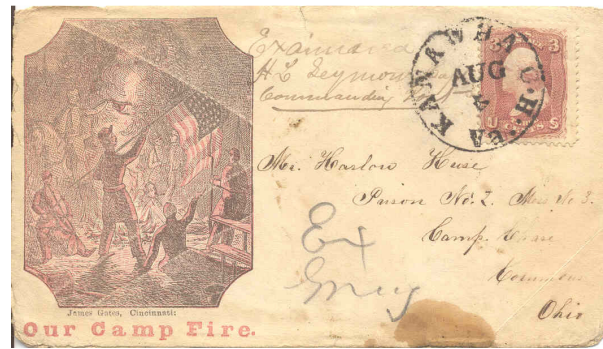 Examined
H L Seymour
Commanding
KANAWHA C.H. VA
AUG
3
U S
Mr. Harlow Huse
Prison No. 2. Mess No 3.
Camp. Chase
Columbus
Ohio
Ex
James Gates, Cincinnati:
Our Camp Fire.